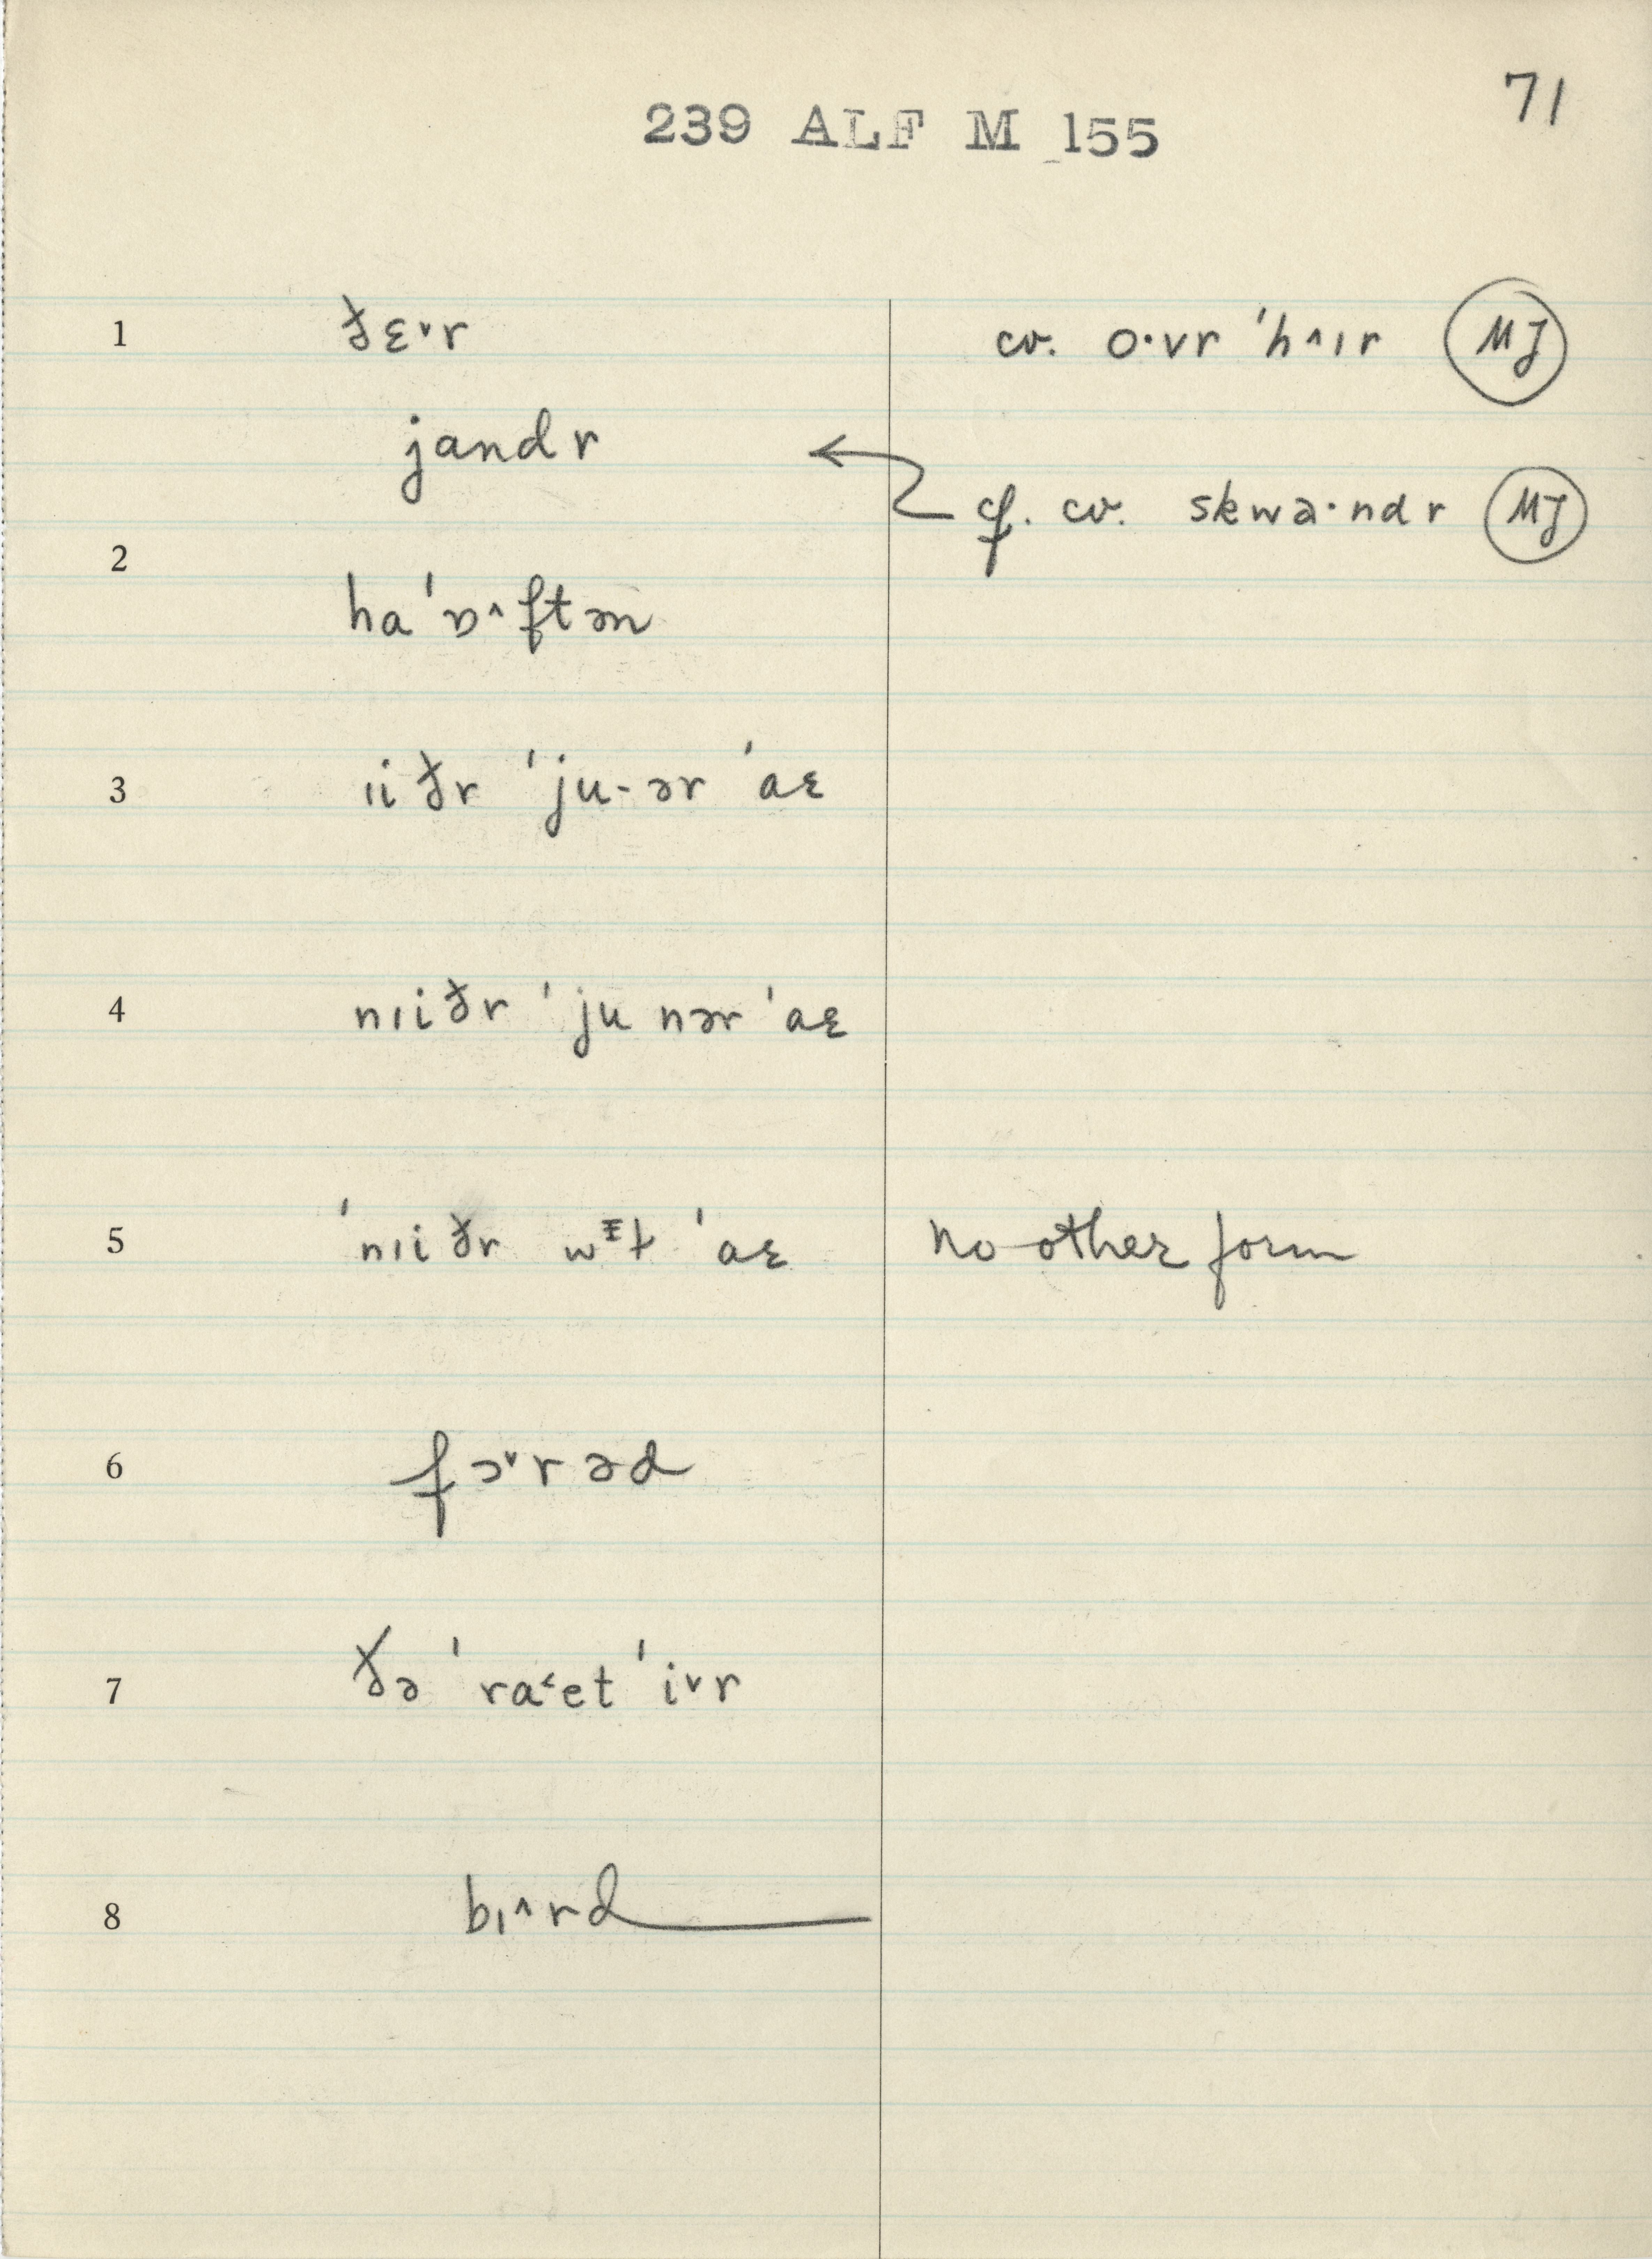 71
239 ALF M 155
1 ðɛ˅r cv. o·vr ˈh˄ɪr MJ
jandr
cf. cv. skwa·ndr MJ
2
haˈɒ˄ftən
3 ɪiðr ˈju-ər ˈaɛ
4 nɪiðr ˈju nər ˈaɛ
5 ˈnɪiðr wᵻt ˈaɛ no other form
6 fɔ˅rəd
7 ðə ˈra˂et ˈi˅r
8 bɪ˄rd